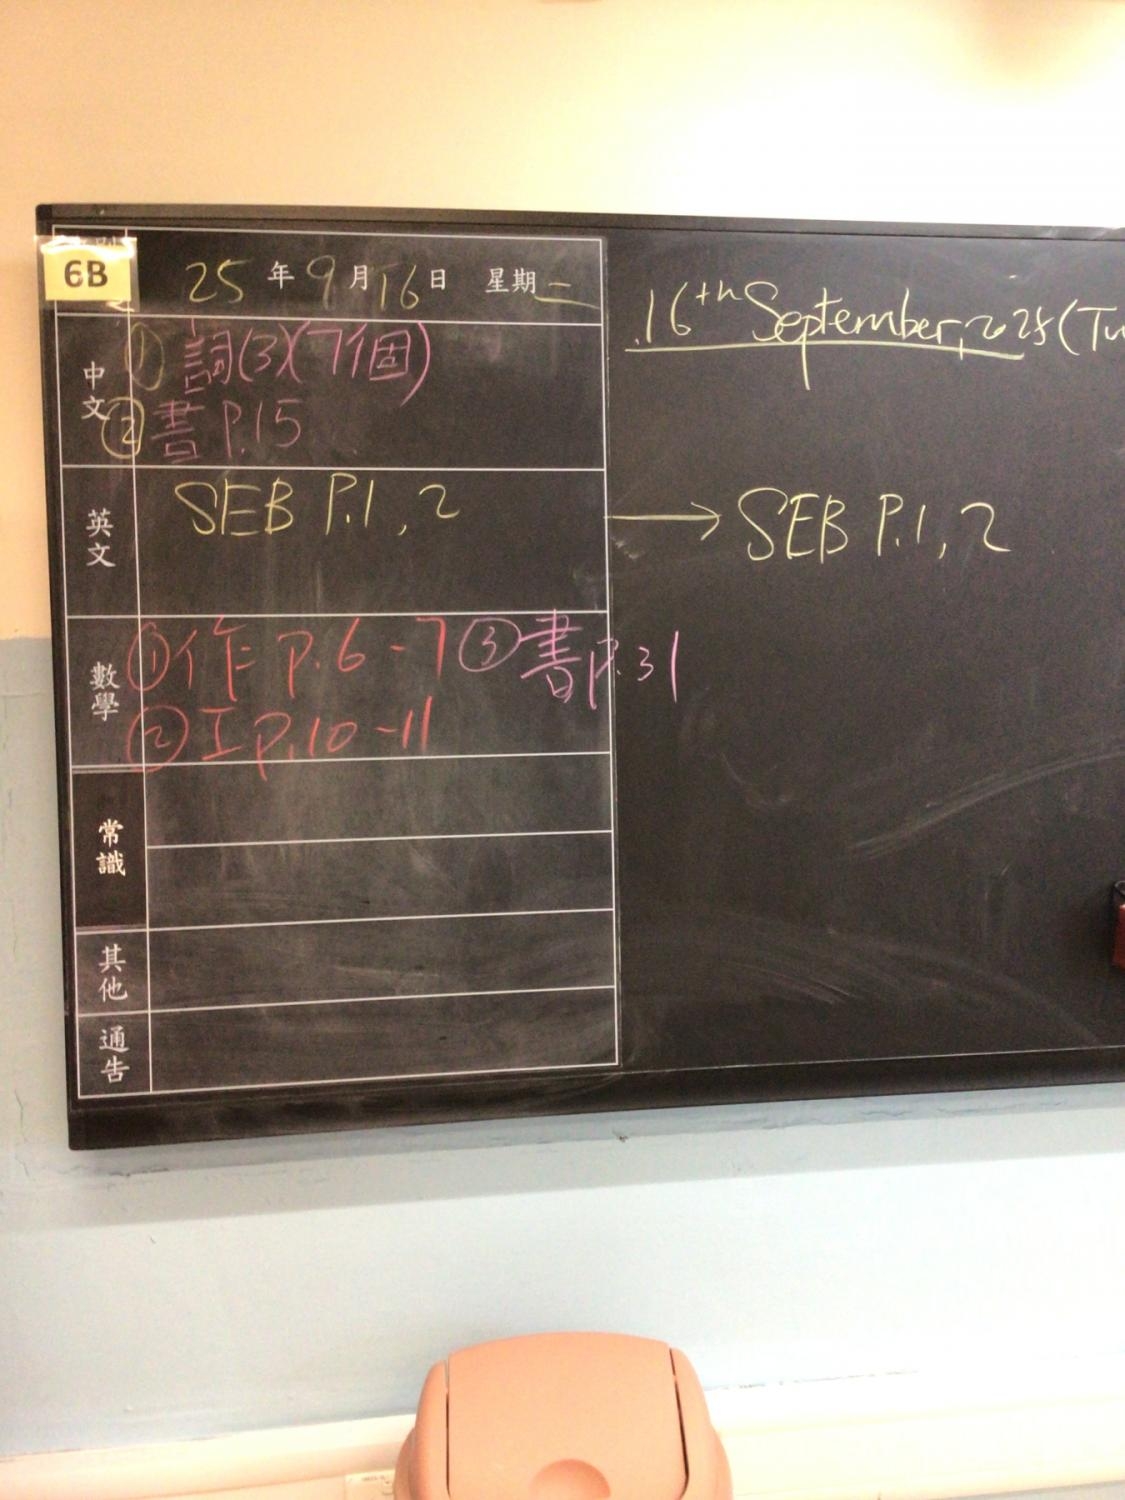 6B
25年9月16日 星期二
中文
① 詞(3)(7個)
② 書 P.15
英文
SEB P.1, 2
數學
①作 P.6-7 ③書P.31
②工P.10-11
常識
其他
通告
16th September, 2025 (Tu
→ SEB P.1, 2